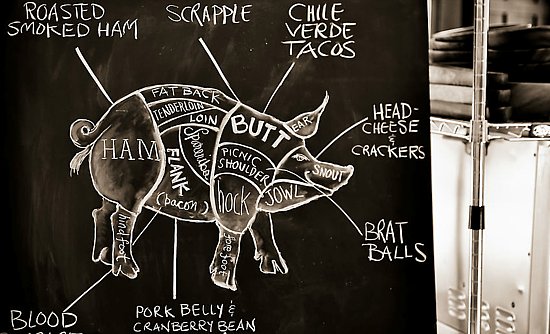 ROASTED
SMOKED HAM
SCRAPPLE
CHILE
VERDE
TACOS
FAT BACK
TENDERLOIN
LOIN
Spareribs
BUTT
EAR
HAM
FLANK
(bacon)
PICNIC
SHOULDER
SNOUT
JOWL
hock
hind foot
forefoot
HEAD-
CHEESE
&
CRACKERS
BRAT
BALLS
PORK BELLY &
CRANBERRY BEAN
BLOOD